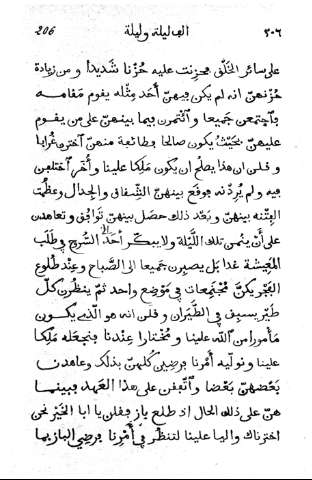 206 الف ليلة وليلة ٢٠٦
على سائر الخلق فحزنت عليه حُزْنا شديدا ومن زيادة
حُزنهنّ انه لم يكن فيهنّ أحَد مثله يقوم مقامه
فاجتمعن جميعا وأتمرن فيما بينهنّ على من يقوم
عليهنّ بحَيْثُ يكون صالحا وطائفة منهنّ اخترن غُرابا
وقلن ان هذا يصلُح ان يكون مَلِكا علينا وأُخَر اختلفن
فيه ولم يُردْنه فوقع بينهنّ الشِقاق والجِدال وعظُمت
الفِتْنه بينهنّ وبَعْد ذلك حصَل بينهنّ تَوافُق وتعاهدن
على أنْ ينُمن تلك اللَّيْلة ولا يبكّر أحد الى السُرُح في طَلَب
المَعيشة غدا بَل يصبرن جميعا الى الصَباح وعِنْد طلوع
الفَجْر يكنّ مُجْتمعات في مَوْضع واحد ثمّ ينظرن كلّ
طَيْر يسبق في الطَيَران وقلن انه هو الّذي يكون
مأمورا من الله علينا ومُختارا عِنْدنا فنجعله مَلكا
علينا ونولّيه أمْرنا فرضين كلّهنّ بذلك وعاهدن
بَعْضهنّ بَعْضا واتّفقن على هذا العَهد فبينما
هنّ على ذلك الحال اذ طلع باز فقلن يا ابا الخَيْر نحن
اخترناك واليا علينا لتنظُر في أمْرنا فرضي الباز بما